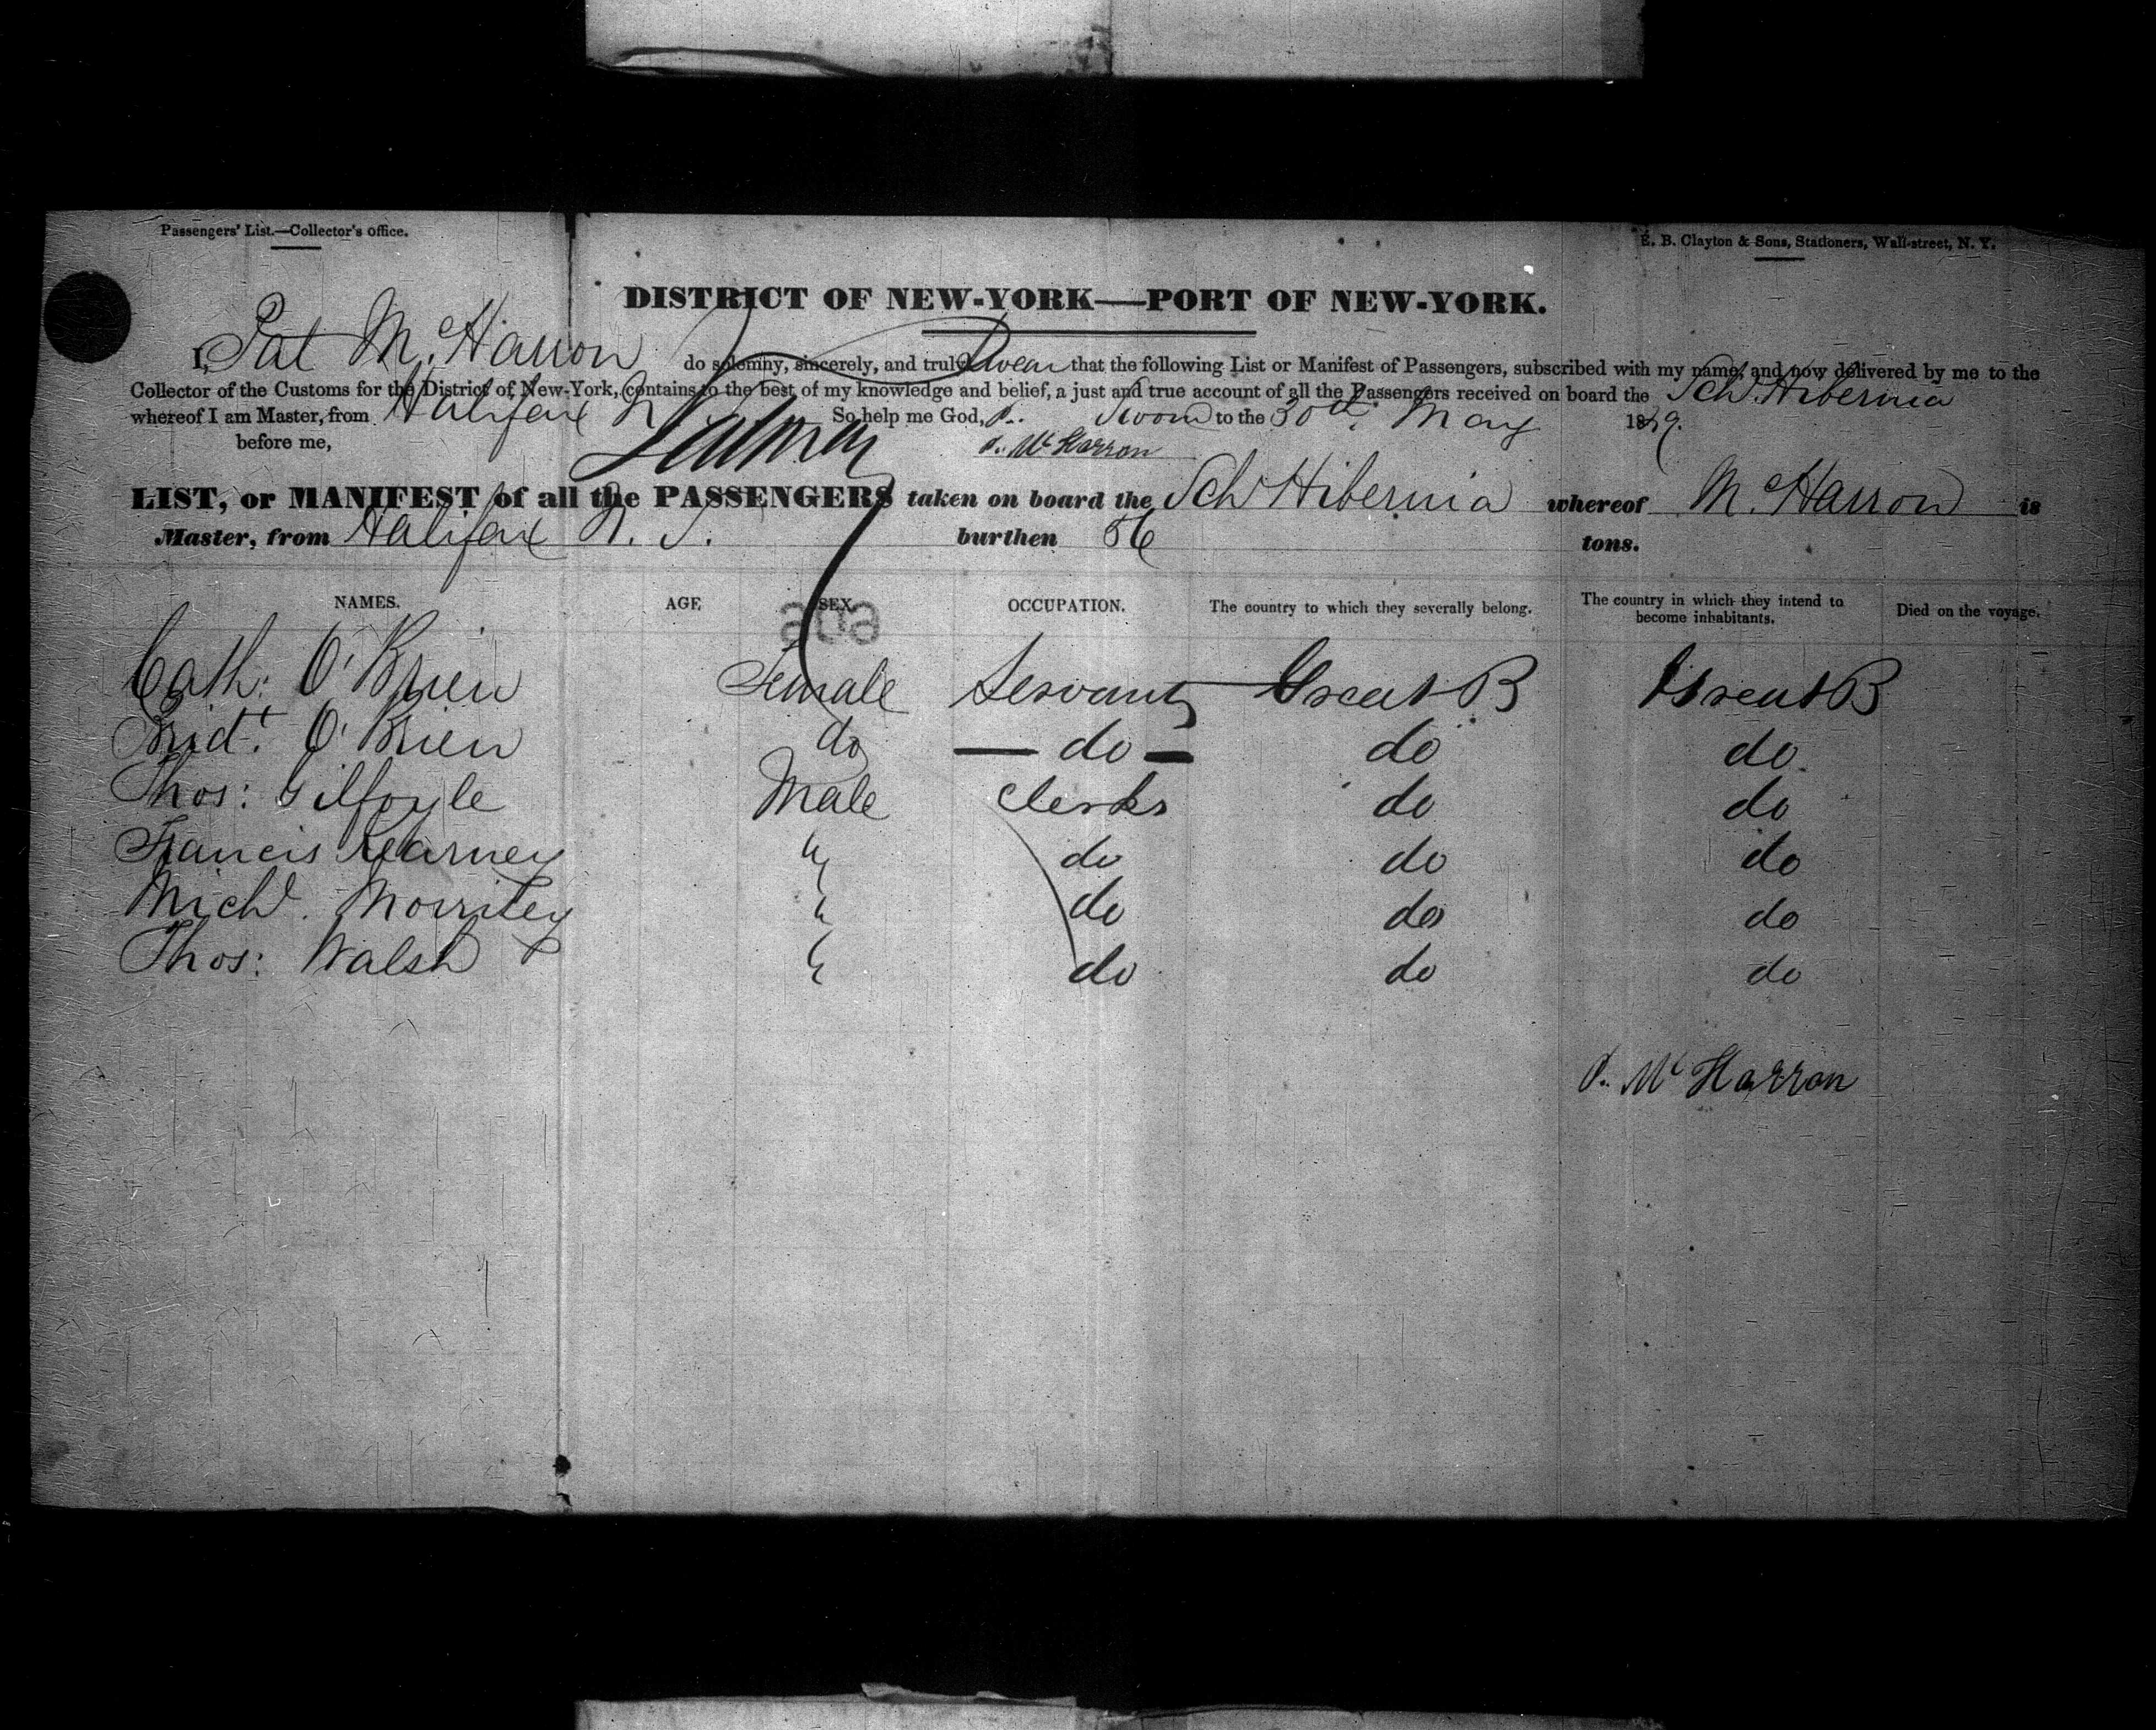 Passengers' List.—Collector's Office.
E. B. Clayton & Sons, Stationers, Wall-street, N. Y.
DISTRICT OF NEW-YORK—PORT OF NEW-YORK.
I, Pat McHarron do solemny, sincerely, and truly Swear that the following List or Manifest of Passengers, subscribed with my name, and now delivered by me to the
Collector of the Customs for the District of New-York, contains to the best of my knowledge and belief, a just and true account of all the Passengers received on board the Schr Hibernia
whereof I am Master, from Halifax N So help me God, P. Sworn to the 30th May 18
before me, P. McHarron
LIST, or MANIFEST of all the PASSENGERS taken on board the Schr Hibernia whereof McHarron is
Master, from Halifax N. S. burthen 86 tons.
NAMES. AGE SEX. OCCUPATION. The country to which they severally belong. The country in which they intend to become inhabitants. Died on the voyage.
Cath: O'Brien Female Servants Great B Great B
Bridt. O'Brien do — do — do do.
Thos: Gilfoyle Male Clerks do do
Francis Kearney " do do do
Michl. Morrisey " do do do
Thos: Walsh " do do do
P. McHarron